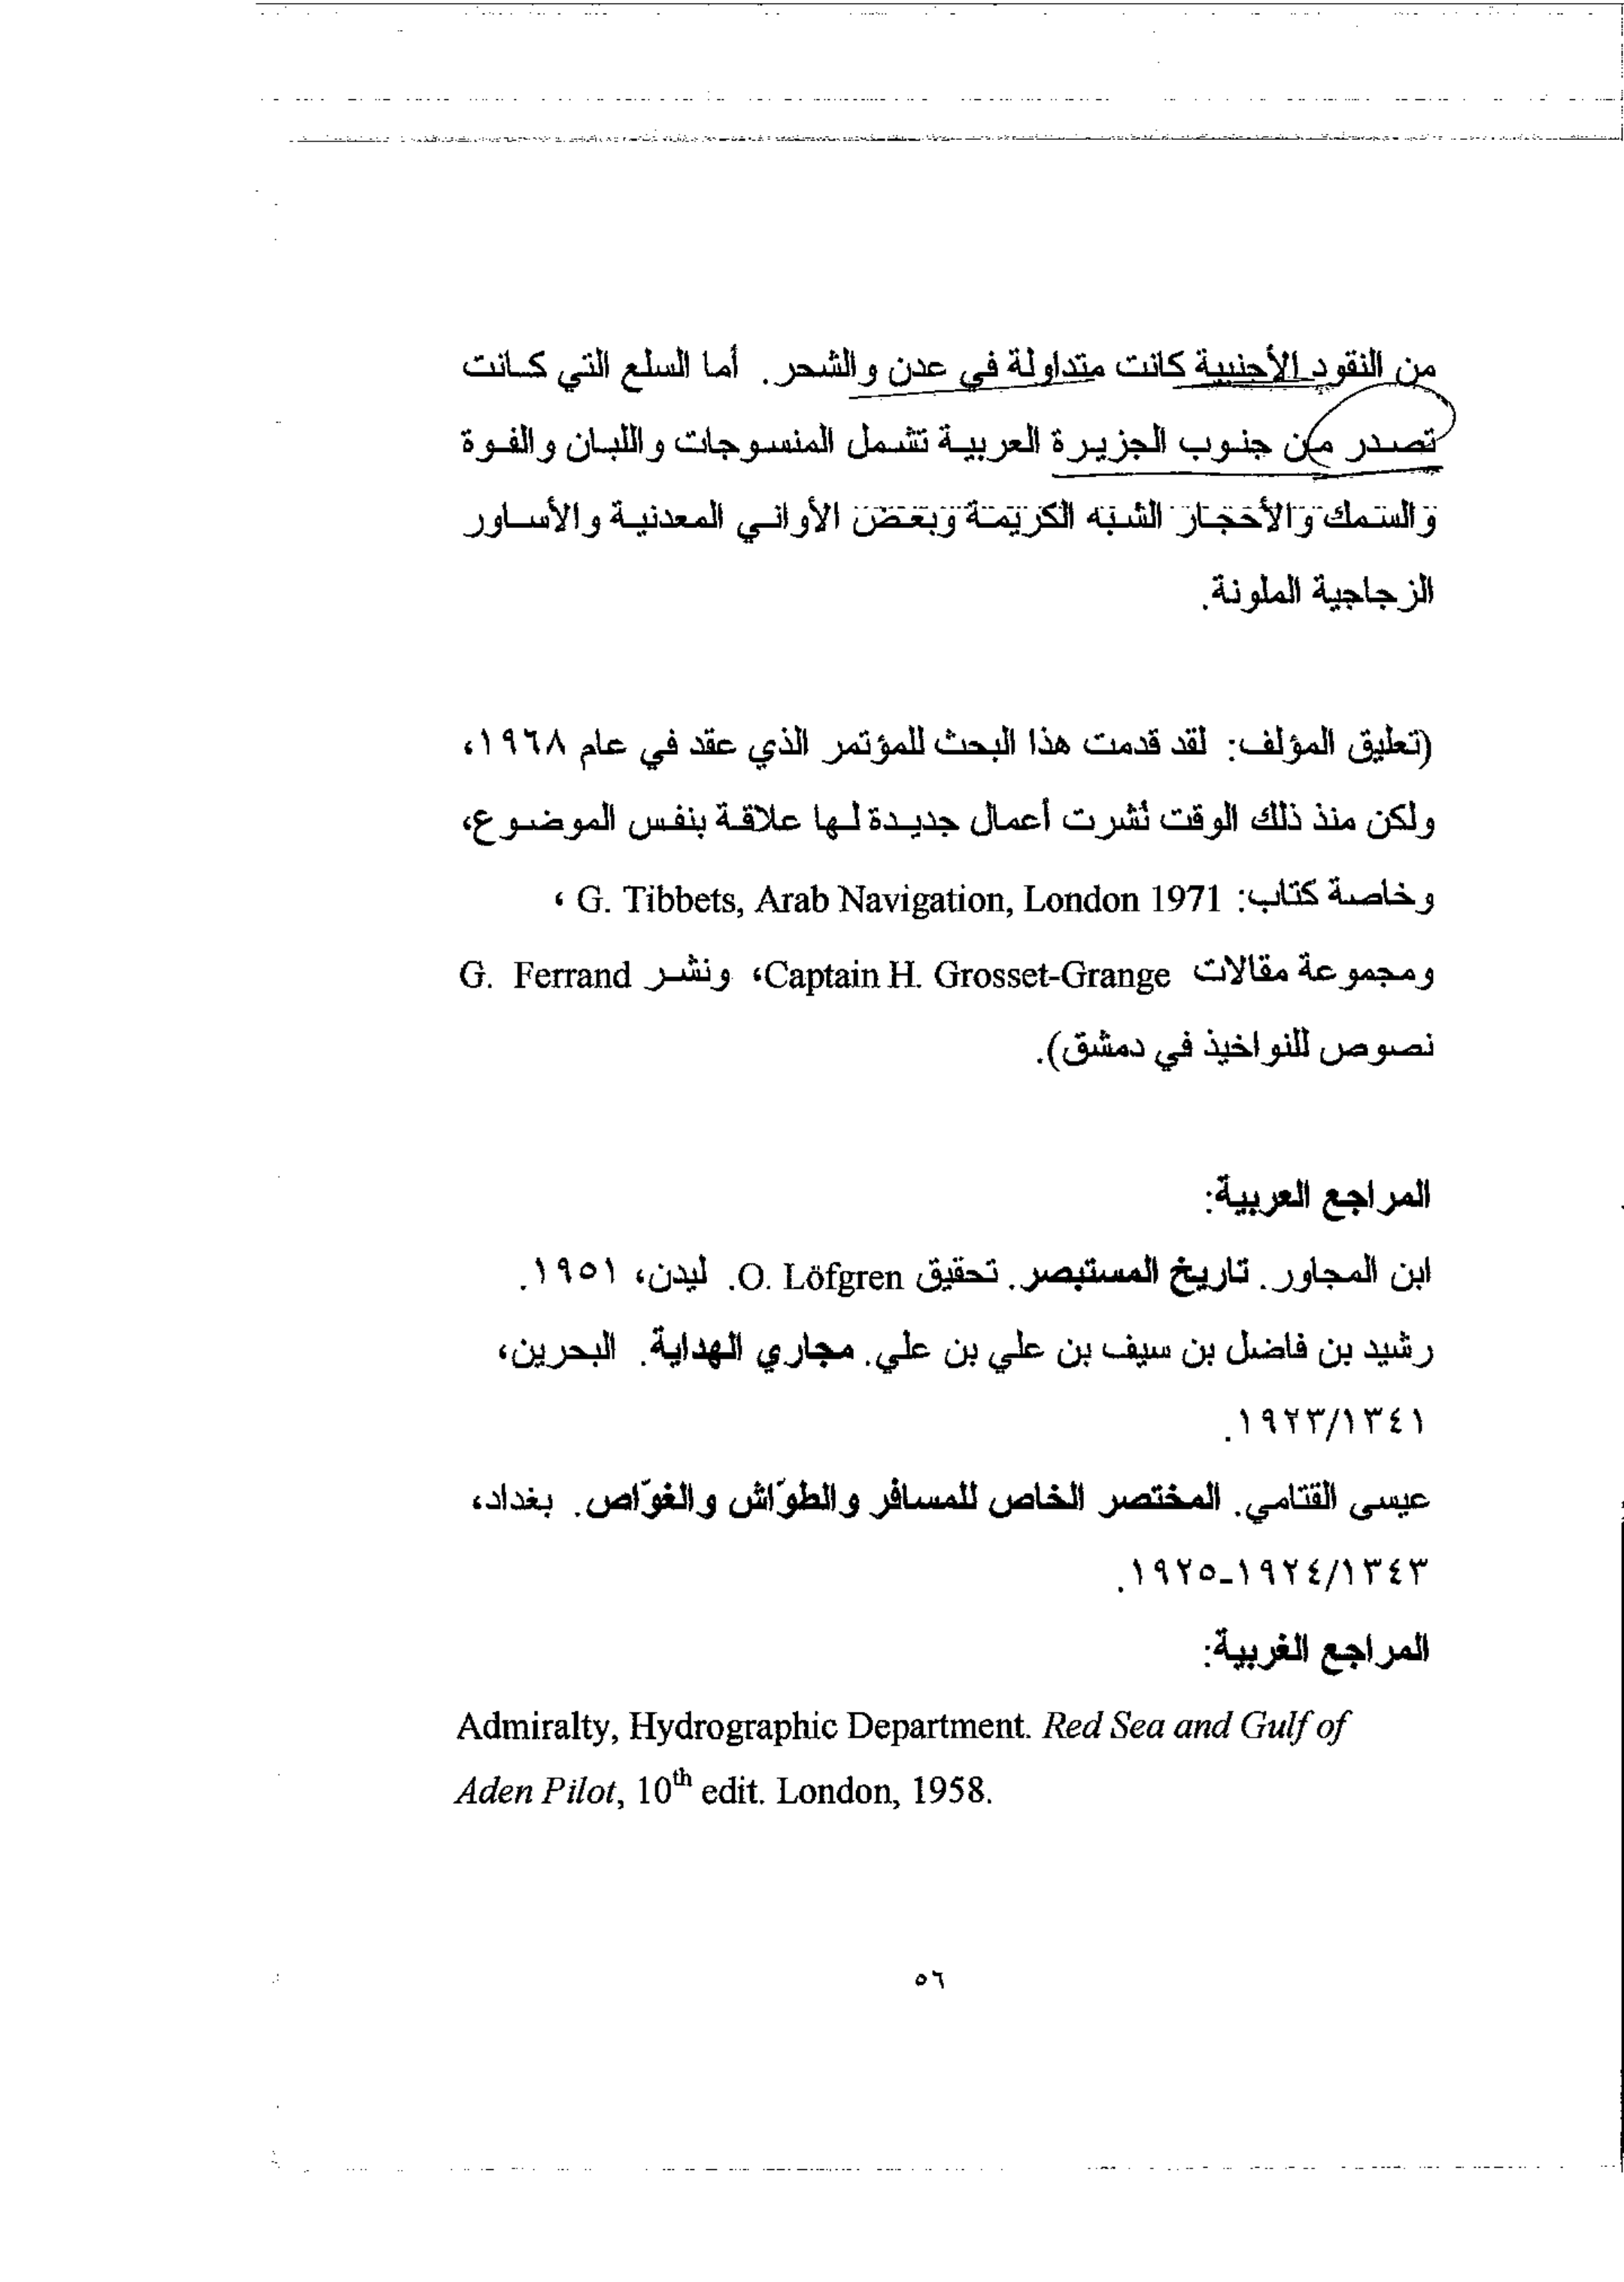 من النقود الأجنبية كانت متداولة في عدن والشحر. أما السلع التي كانت
تصدر من جنوب الجزيرة العربية تشمل المنسوجات واللبان والفوة
والسمك والأحجار الشبه الكريمة وبعض الأواني المعدنية والأساور
الزجاجية الملونة.
(تعليق المؤلف: لقد قدمت هذا البحث للمؤتمر الذي عقد في عام ١٩٦٨،
ولكن منذ ذلك الوقت نُشرت أعمال جديدة لها علاقة بنفس الموضوع،
وخاصة كتاب: G. Tibbets, Arab Navigation, London 1971 ،
ومجموعة مقالات Captain H. Grosset-Grange، ونشر G. Ferrand
نصوص للنواخيذ في دمشق).
المراجع العربية:
ابن المجاور. تاريخ المستبصر. تحقيق O. Löfgren. ليدن، ١٩٥١.
رشيد بن فاضل بن سيف بن علي بن علي. مجاري الهداية. البحرين،
١٩٢٣/١٣٤١.
عيسى القتامي. المختصر الخاص للمسافر والطوّاش والغوّاص. بغداد،
١٩٢٥-١٩٢٤/١٣٤٣.
المراجع الغربية:
Admiralty, Hydrographic Department. Red Sea and Gulf of
Aden Pilot, 10th edit. London, 1958.
٥٦